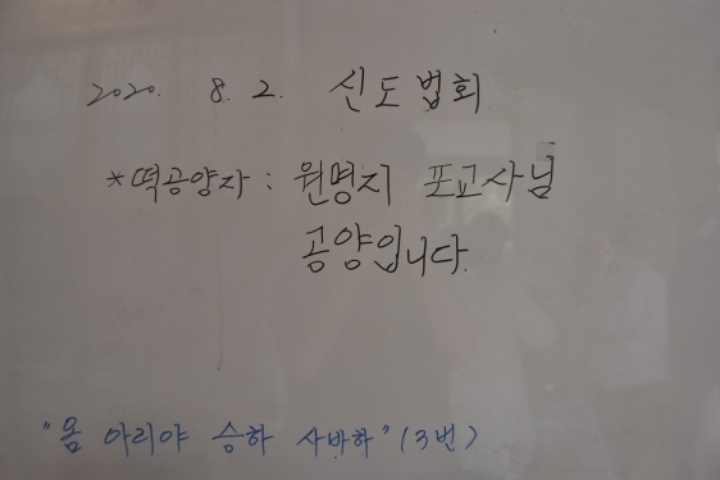 2020. 8. 2. 신도법회
*떡공양자 : 원명지 포교사님
공양입니다.
"옴 아리야 승하 사바하" (3번)